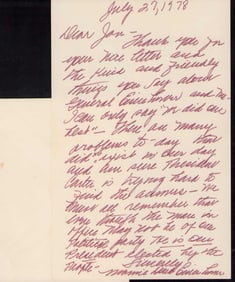 July 27, 1978
Dear Jan -
Thank you for
your nice letter and
the kind and friendly
things you say about
General Eisenhower and me.
I can only say "we did our
best" - There are many
problems to-day that
did exist in our day
and I'm sure President
Carter is trying hard to
find the answers - We
must all remember that
even though the man in
office may not be of our
political party he is our
President elected by the
people -
Sincerely
Mamie Doud Eisenhower